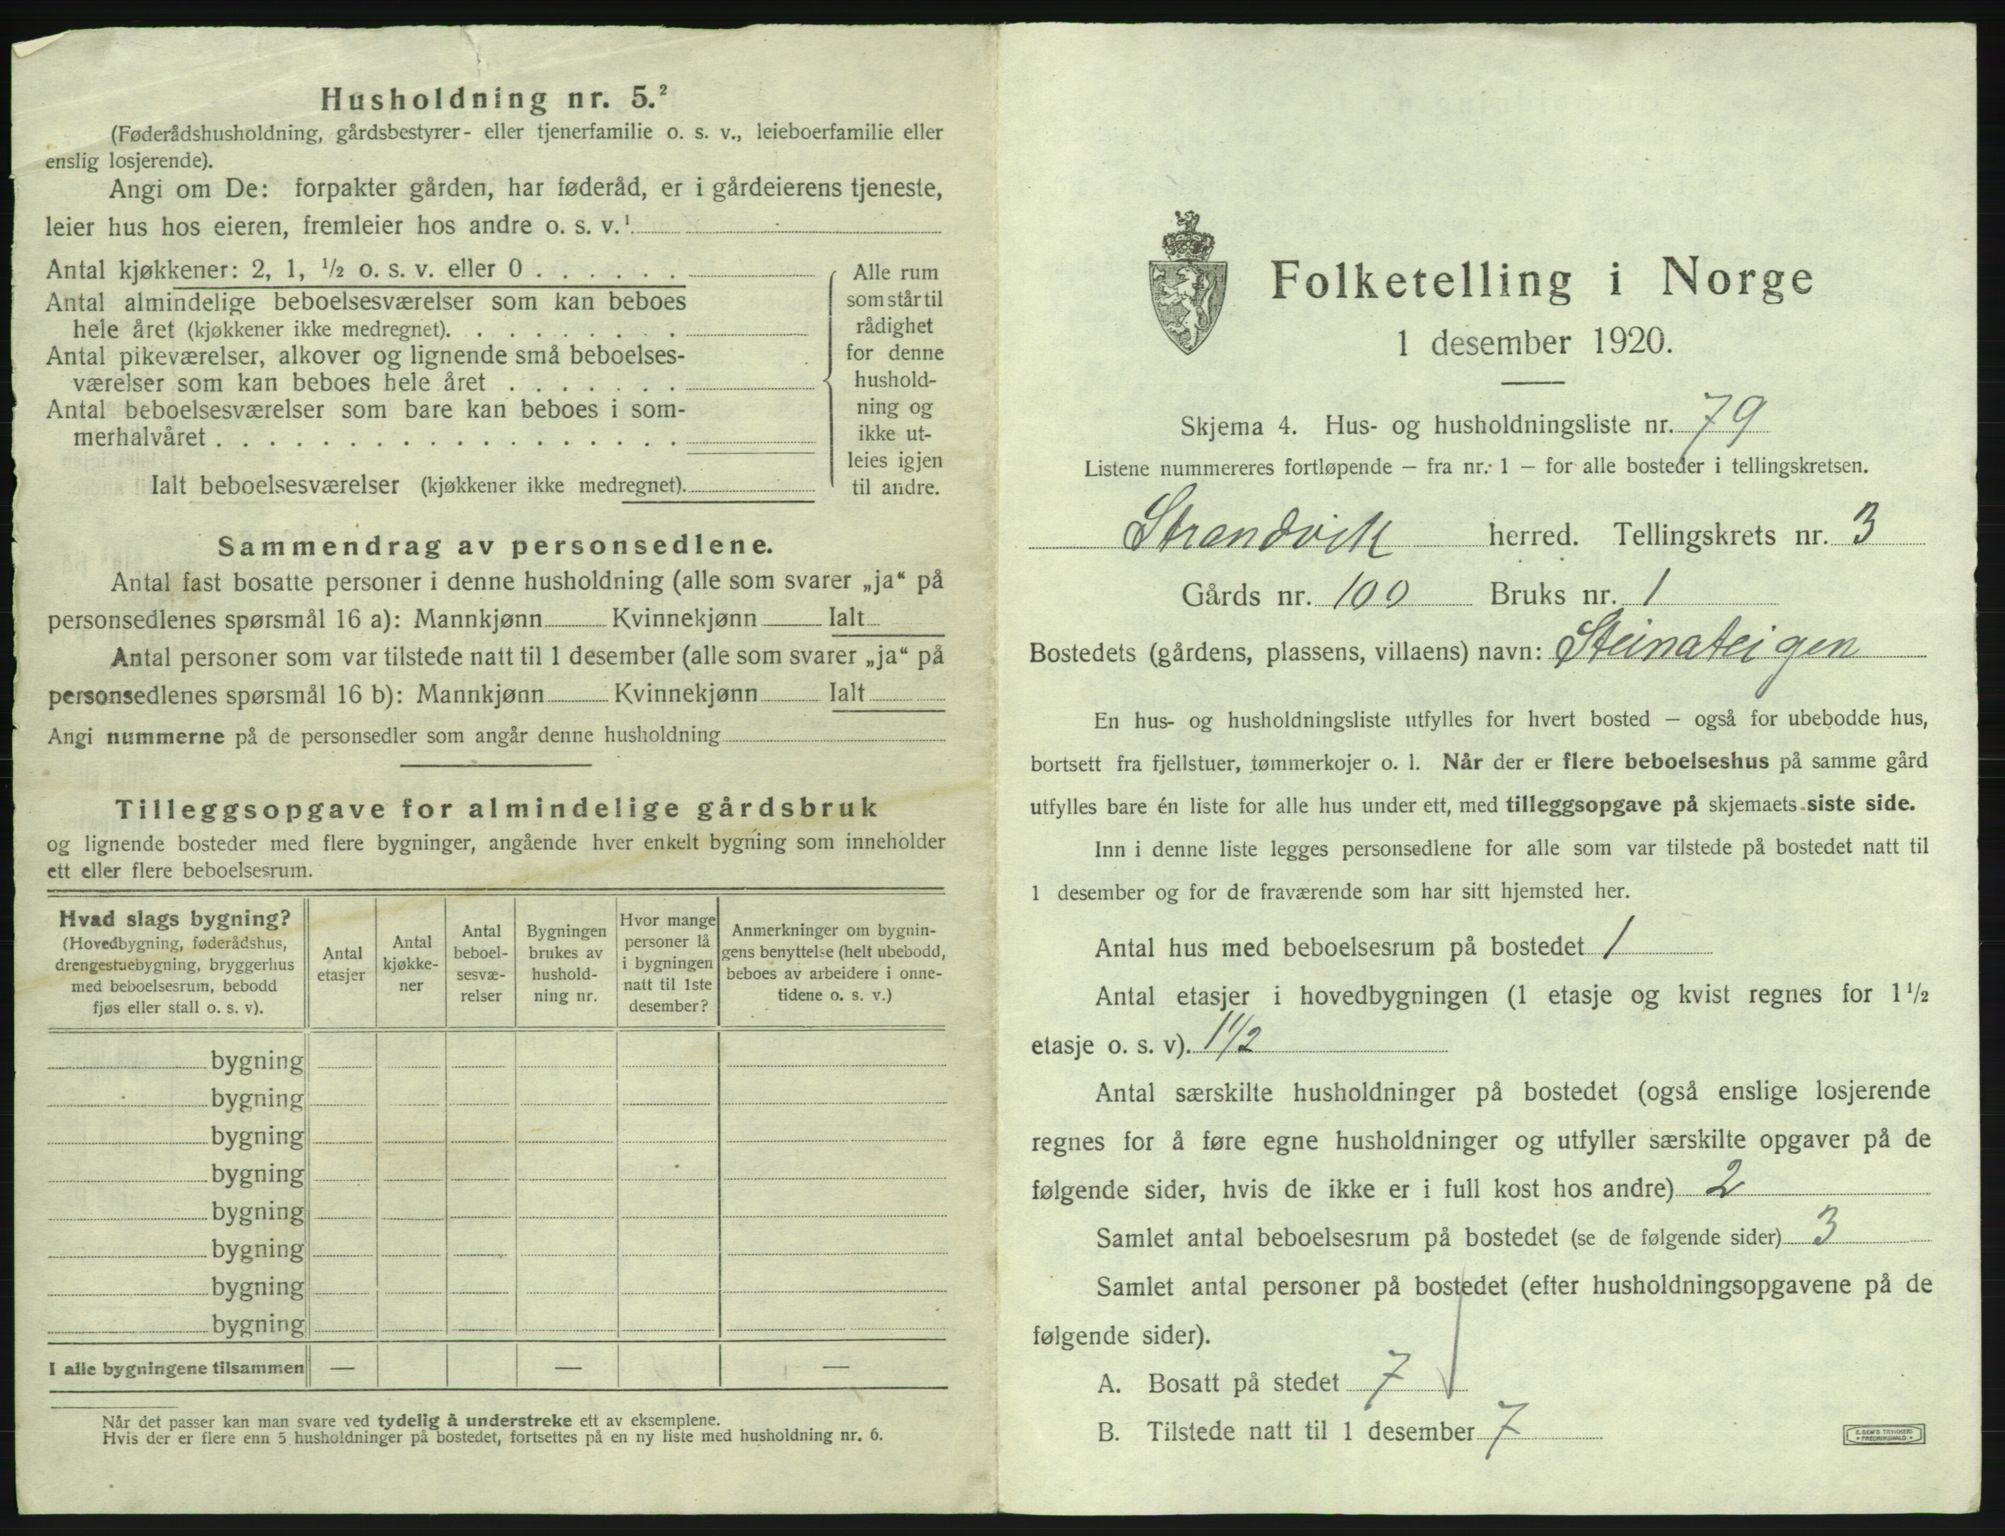 Husholdning nr. 5.²
(Føderådshusholdning, gårdsbestyrer- eller tjenerfamilie o. s. v., leieboerfamilie eller
enslig losjerende).
Angi om De: forpakter gården, har føderåd, er i gårdeierens tjeneste,
leier hus hos eieren, fremleier hos andre o. s. v.¹
Antal kjøkkener: 2, 1, ½ o. s. v. eller 0 . . . . . .
Antal almindelige beboelsesværelser som kan beboes
hele året (kjøkkener ikke medregnet). . . . . . . . .
Antal pikeværelser, alkover og lignende små beboelses-
værelser som kan beboes hele året . . . . . . .
Antal beboelsesværelser som bare kan beboes i som-
merhalvåret . . . . . . . . . . . . . . . . . .
Ialt beboelsesværelser (kjøkkener ikke medregnet).
Alle rum
som står til
rådighet
for denne
hushold-
ning og
ikke ut-
leies igjen
til andre.
Sammendrag av personsedlene.
Antal fast bosatte personer i denne husholdning (alle som svarer „ja“ på
personsedlenes spørsmål 16 a): Mannkjønn Kvinnekjønn Ialt
Antal personer som var tilstede natt til 1 desember (alle som svarer „ja“ på
personsedlenes spørsmål 16 b): Mannkjønn Kvinnekjønn Ialt
Angi nummerne på de personsedler som angår denne husholdning
Tilleggsopgave for almindelige gårdsbruk
og lignende bosteder med flere bygninger, angående hver enkelt bygning som inneholder
ett eller flere beboelsesrum.
Hvad slags bygning?
(Hovedbygning, føderådshus,
drengestuebygning, bryggerhus
med beboelsesrum, bebodd
fjøs eller stall o. s. v).
Antal
etasjer
Antal
kjøkke-
ner
Antal
beboel-
sesvæ-
relser
Bygningen
brukes av
hushold-
ning nr.
Hvor mange
personer lå
i bygningen
natt til 1ste
desember?
Anmerkninger om bygnin-
gens benyttelse (helt ubebodd,
beboes av arbeidere i onne-
tidene o. s. v.)
bygning
bygning
bygning
bygning
bygning
bygning
bygning
bygning
I alle bygningene tilsammen — — —
Når det passer kan man svare ved tydelig å understreke ett av eksemplene.
Hvis der er flere enn 5 husholdninger på bostedet, fortsettes på en ny liste med husholdning nr. 6.
Folketelling i Norge
1 desember 1920.
Skjema 4. Hus- og husholdningsliste nr. 79
Listene nummereres fortløpende – fra nr. 1 – for alle bosteder i tellingskretsen.
Strandvik herred. Tellingskrets nr. 3
Gårds nr. 100 Bruks nr. 1
Bostedets (gårdens, plassens, villaens) navn: Steinateigen
En hus- og husholdningsliste utfylles for hvert bosted – også for ubebodde hus,
bortsett fra fjellstuer, tømmerkojer o. l. Når der er flere beboelseshus på samme gård
utfylles bare én liste for alle hus under ett, med tilleggsopgave på skjemaets siste side.
Inn i denne liste legges personsedlene for alle som var tilstede på bostedet natt til
1 desember og for de fraværende som har sitt hjemsted her.
Antal hus med beboelsesrum på bostedet 1
Antal etasjer i hovedbygningen (1 etasje og kvist regnes for 1½
etasje o. s. v). 1½
Antal særskilte husholdninger på bostedet (også enslige losjerende
regnes for å føre egne husholdninger og utfyller særskilte opgaver på de
følgende sider, hvis de ikke er i full kost hos andre) 2
Samlet antal beboelsesrum på bostedet (se de følgende sider) 3
Samlet antal personer på bostedet (efter husholdningsopgavene på de
følgende sider).
A. Bosatt på stedet 7
B. Tilstede natt til 1 desember 7